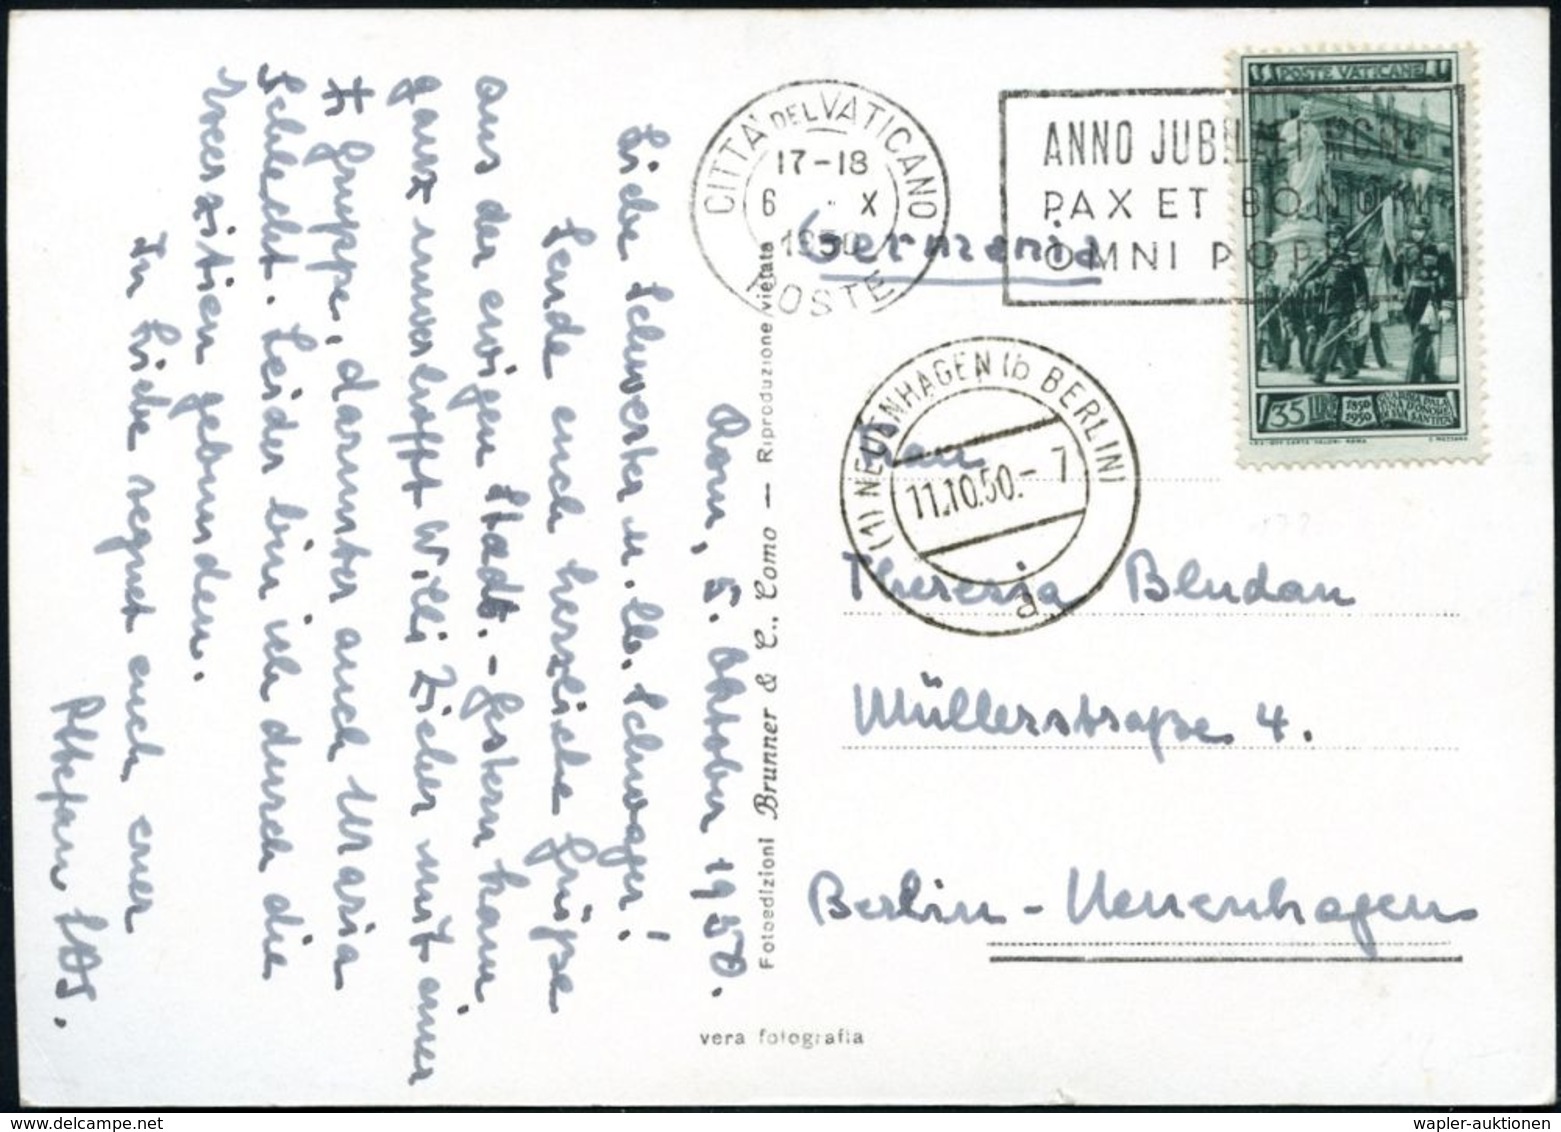 Rom, 5. Oktober 1950.
Liebe Schwester u. lb. Schwager!
Sende euch herzliche Grüße
aus der ewigen Stadt. - Gestern kam
ganz unverhofft Willi Zieher mit einer
Gruppe, darunter auch Maria
Schlecht. Leider bin ich durch die
Exerzitien gebunden.
In Liebe segnet euch euer
P. Stefan SDS.
Fotoedizioni Brunner & C., Como — Riproduzione vietata
vera fotografia
CITTA' DEL VATICANO
17-18
6 X
1950
POSTE
ANNO JUBILAEI MCML
PAX ET BONUM
OMNI POPULO
POSTE VATICANE
35 LIRE
1850
1950
GUARDIA PALA
TINA D'ONORE
DI SUA SANTITÀ
Germania
(1) NEUENHAGEN (b BERLIN)
11.10.50.- 7
Frau
Theresia Bludau
Müllerstraße 4.
Berlin - Neuenhagen
wapler-auktionen